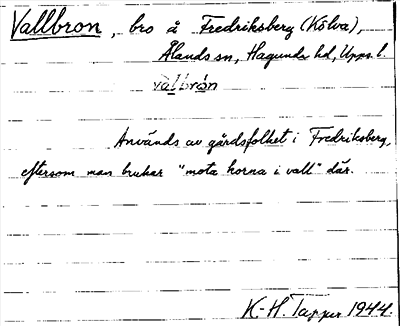 Vallbron, bro å Fredriksberg (Kölva),
Ålands sn, Hagunda hd, Upps. l.
valbrón
Används av gårdsfolket i Fredriksberg,
eftersom man brukar "mota korna i vall" där.
K-H. Tapper 1944.